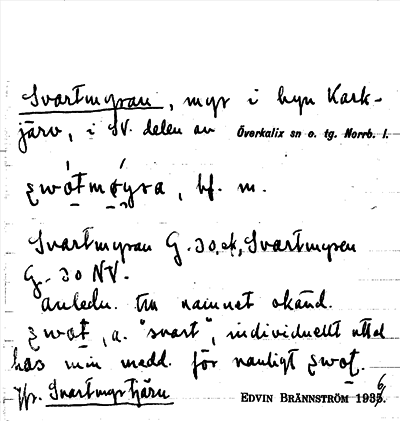 Svartmyran, myr i byn Kark-
järv, i SV. delen av Överkalix sn o. tg. Norrb. l.
bf. m.
Svartmyran G. 30 Svartmyren
G. 30 NV.
anledn. till namnet okänd.
a. "svart", individuellt uttal
hos min medd. för vanligt
Jfr. Svartmyrtjärn EDVIN BRÄNNSTRÖM 1936.